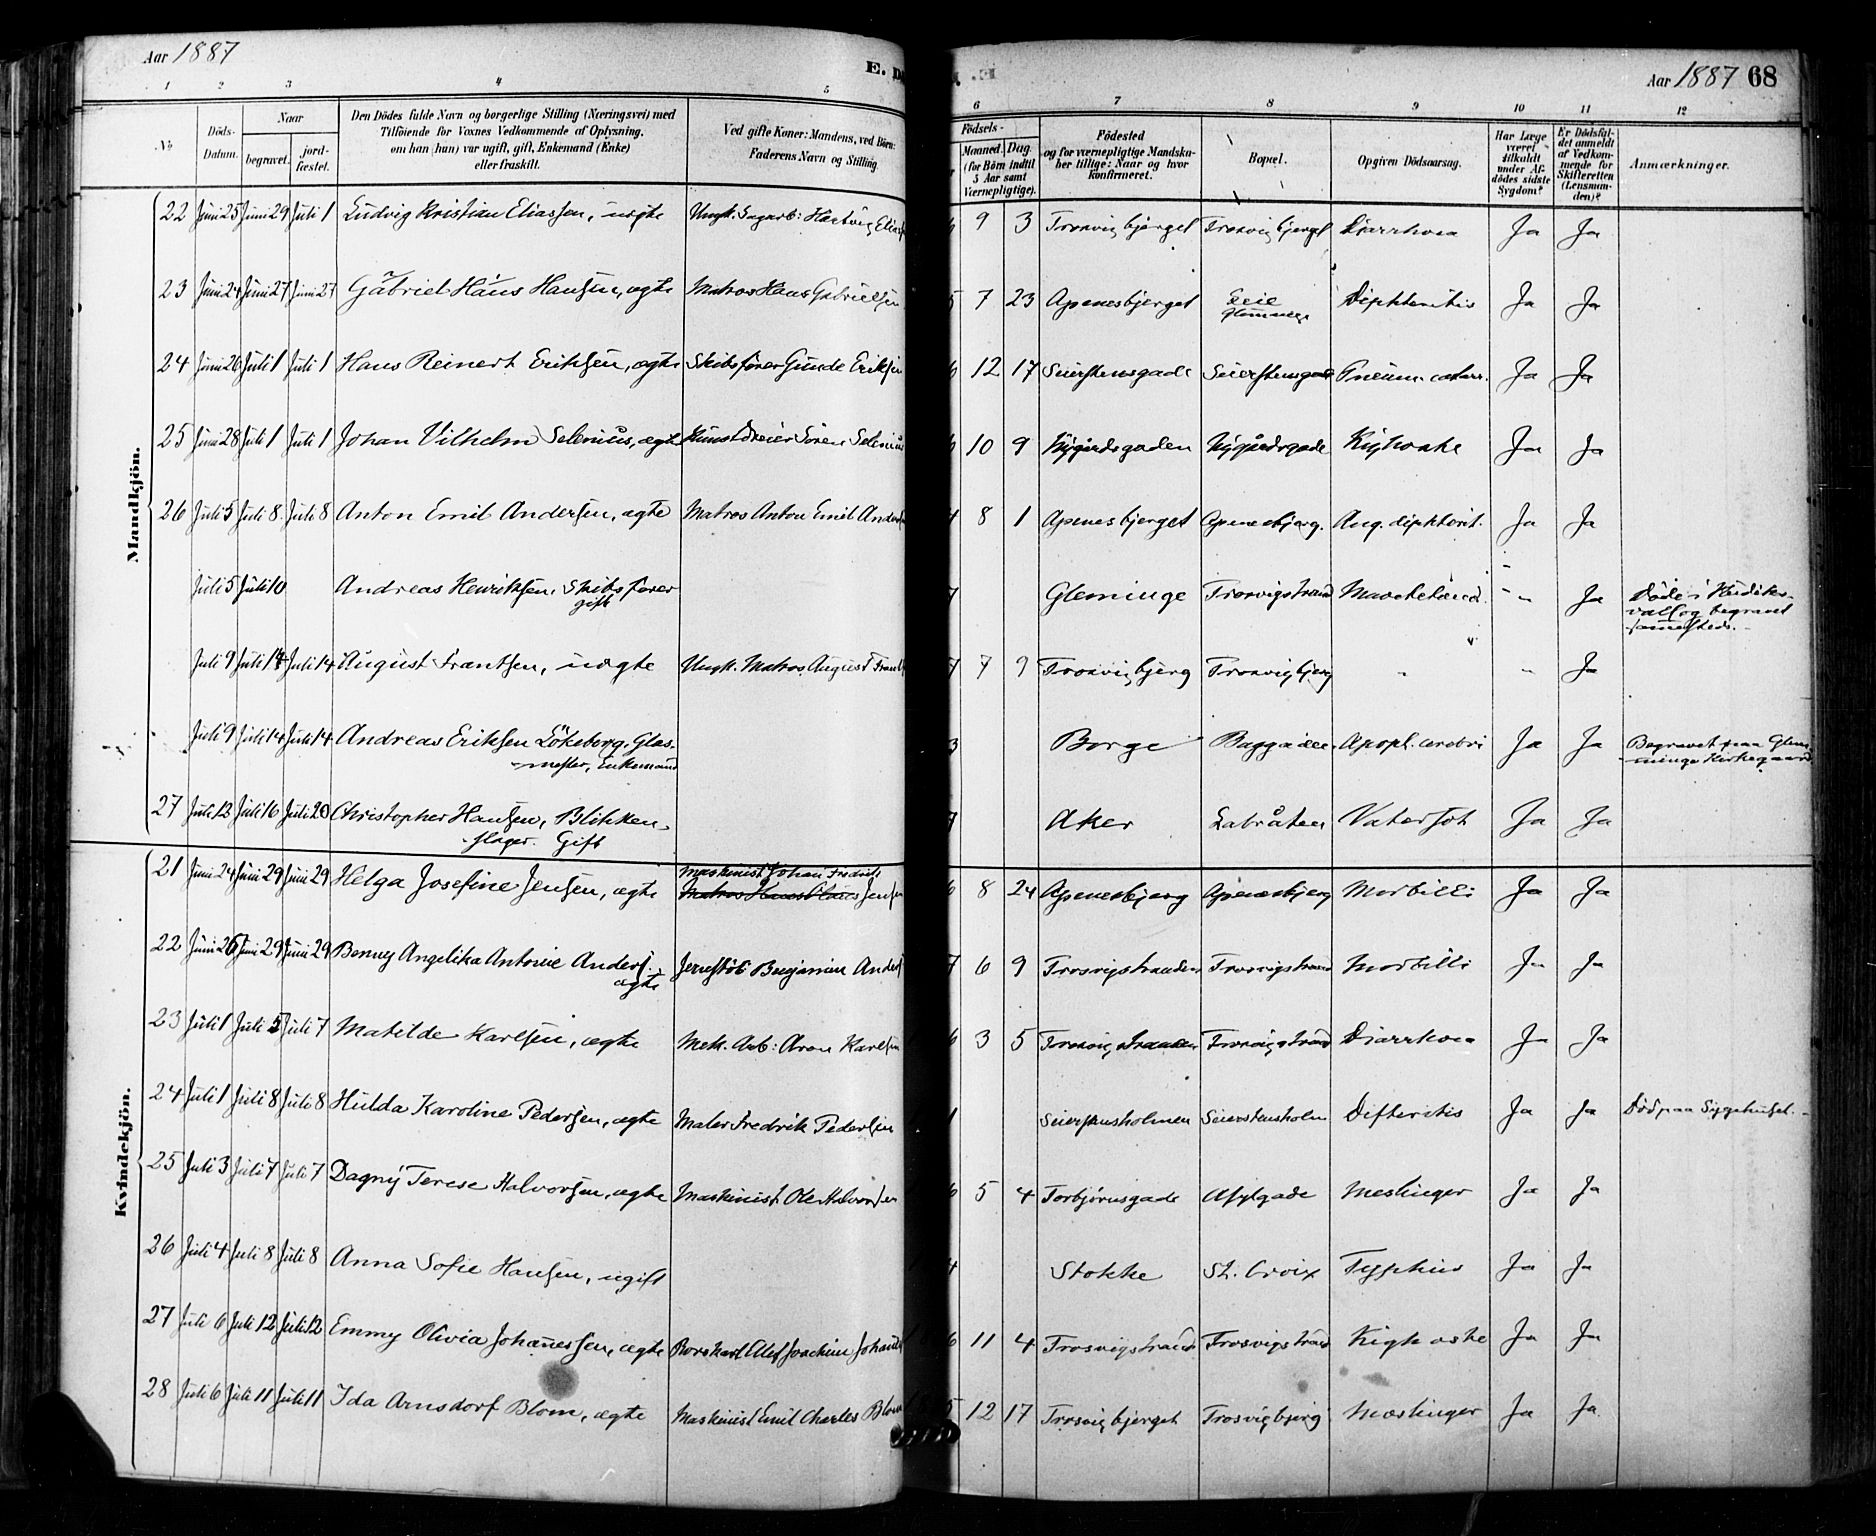 Aar 1887
E. D
Aar 1887 68
1 2 3 4 5 6 7 8 9 10 11 12
No Döds-Datum. Naar begravet. jord-fæstet. Den Dödes fulde Navn og borgerlige Stilling (Næringsvei) med Tilföiende for Voxnes Vedkommende af Oplysning, om han (hun) var ugift, gift, Enkemand (Enke) eller fraskilt. Ved gifte Koner: Mandens, ved Börn: Faderens Navn og Stilling. Födsels- Maaned. Dag. (for Börn indtil 5 Aar samt Værnepligtige). Födested og for værnepligtige Mandska-ber tillige: Naar og hvor konfirmeret. Bopæl. Opgiven Dödsaarsag. Har Læge været tilkaldt under Af-dödes sidste Sygdom? Er Dödsfal-det anmeldt af Vedkom-mende for Skifteretten (Lensman-den)? Anmærkninger.
Mandkjön.
22 Juni 25 Juni 29 Juli 1 Ludvig Kristian Eliassen, uægte Ungk. Sagarb: Hartvig Elias 9 3 Trosvigbjerget Trosvigbjerget Diarrhoea Ja Ja
23 Juni 24 Juni 27 Juni 27 Gabriel Hans Hansen, ægte Matros Hans Gabrielsen 7 23 Apenesbjerget Feie Glemminge Diphteritis Ja Ja
24 Juni 26 Juli 1 Juli 1 Hans Reinert Eriksen, ægte Skibsfører Gunde Eriksen 12 17 Seierstensgade Seierstensgade Pneum. catarr. Ja Ja
25 Juni 28 Juli 1 Juli 1 Johan Vilhelm Selenius, ægte Kunstdreier Sören Selenius 10 9 Nygårdsgaden Nygårdsgade Kighoste Ja Ja
26 Juli 5 Juli 8 Juli 8 Anton Emil Andersen, ægte Matros Anton Emil Anders 8 1 Apenesbjerget Apenesbjerg. Ang. diphterit. Ja Ja
Juli 5 Juli 10 Andreas Henriksen, Skibsfører gift Gleminge Trosvigstrand " Ja Døde i
og begravet
samesteds.
Juli 9 Juli 14 Juli 14 August Frantsen, uægte Ungk. Matros August Frants 7 9 Trosvigbjerg Trosvigbjerg " " Ja
Juli 9 Juli 14 Juli 14 Andreas Eriksen Lökeberg, Glas-
mester, Enkemand Borge Apopl. cerebri Ja Ja Begravet paa Glem-
minge Kirkegaard
27 Juli 12 Juli 16 Juli 20 Christopher Hansen, Blikken-
slager. Gift Aker Labråten Vatersot Ja Ja
Kvindekjön.
21 Juni 24 Juni 29 Juni 29 Helga Josefine Jensen, ægte Maskinist Johan Fredrik
Jensen 8 24 Apenesbjerg Apenesbjerg Morbilli Ja Ja
22 Juni 26 Juni 29 Juni 29 Benny Angelika Antonie Anders.
ægte Jernstöb Benjamin Anders 6 9 Trosvigstranden Trosvigstrand Morbilli Ja Ja
23 Juli 1 Juli 5 Juli 7 Matilde Karlsen, ægte Mek. Arb: Aron Karlsen 3 5 Trosvigstranden Trosvigstrand Diarrhoea Ja Ja
24 Juli 1 Juli 8 Juli 8 Hulda Karoline Pedersen, ægte Maler Fredrik Pedersen 1 Seierstensholmen Seierstensholm Difteritis Ja Ja Död paa Sygehuset.
25 Juli 3 Juli 7 Juli 7 Dagny Terese Halvorsen, ægte Maskinist Ole Halvorsen 5 4 Torbjørnsgade Asylgade Meslinger Ja Ja
26 Juli 4 Juli 8 Juli 8 Anna Sofie Hansen, ugift Stokke St. Croix Typhus Ja Ja
27 Juli 6 Juli 12 Juli 12 Emmy Olivia Johannessen, ægte Joachim Johannes 11 4 Trosvigstrand Trosvigstrand Kighoste Ja Ja
28 Juli 6 Juli 11 Juli 11 Ida Arnsdorf Blom, ægte Maskinist Emil Charles Blom 12 17 Trosvigbjerget Trosvigbjerg Mæslinger Ja Ja